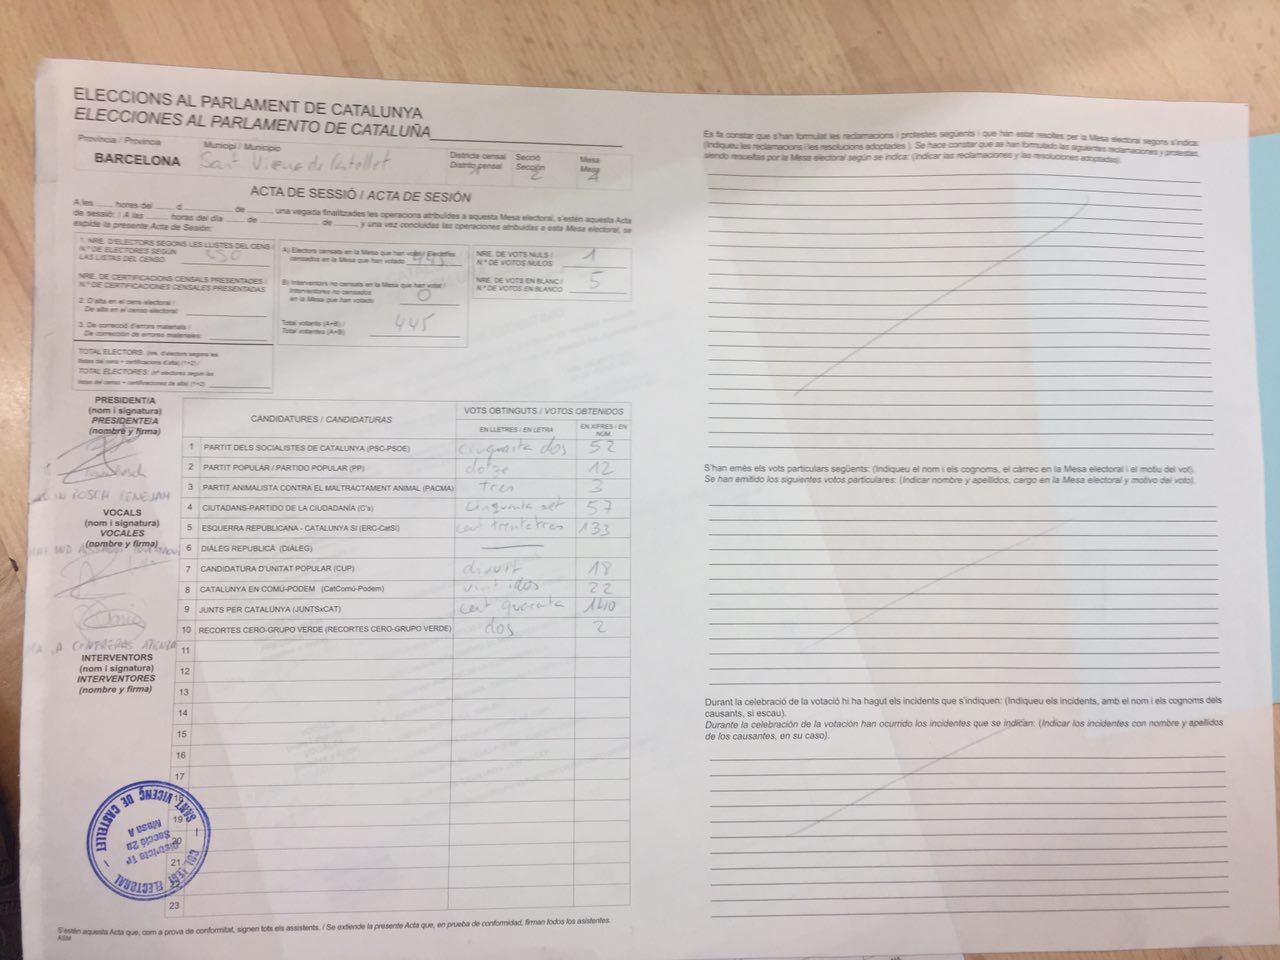 ELECCIONS AL PARLAMENT DE CATALUNYA
ELECCIONES AL PARLAMENTO DE CATALUÑA
Província / Provincia
BARCELONA
Municipi / Municipio
Sant Vicenç de Castellet
Districte censal
Distrito censal
Secció
Sección
2
Mesa
Mesa
A
ACTA DE SESSIÓ / ACTA DE SESIÓN
A les ____ hores del ____ d ____ de ____ una vegada finalitzades les operacions atribuïdes a aquesta Mesa electoral, s'estén aquesta Acta
de sessió: / A las ____ horas del día ____ de ____ de ____ y una vez concluidas las operaciones atribuidas a esta Mesa electoral, se
expide la presente Acta de Sesión:
1. NRE. D'ELECTORS SEGONS LES LLISTES DEL CENS /
N.º DE ELECTORES SEGÚN
LAS LISTAS DEL CENSO
NRE. DE CERTIFICACIONS CENSALS PRESENTADES /
N.º DE CERTIFICACIONES CENSALES PRESENTADAS
2. D'alta en el cens electoral /
De alta en el censo electoral:
3. De correcció d'errors materials /
De corrección de errores materiales:
TOTAL ELECTORS: (nre. d'electors segons les
llistes del cens + certificacions d'alta) (1+2) /
TOTAL ELECTORES: (nº electores según las
listas del censo + certificaciones de alta) (1+2)
A) Electors censats en la Mesa que han votat / Electores
censados en la Mesa que han votado 445
B) Interventors no censats en la Mesa que han votat /
Interventores no censados
en la Mesa que han votado 0
Total votants (A+B) /
Total votantes (A+B) 445
NRE. DE VOTS NULS /
N.º DE VOTOS NULOS 1
NRE. DE VOTS EN BLANC /
N.º DE VOTOS EN BLANCO 5
PRESIDENT/A
(nom i signatura)
PRESIDENTE/A
(nombre y firma)
VOCALS
(nom i signatura)
VOCALES
(nombre y firma)
CONTRERAS
INTERVENTORS
(nom i signatura)
INTERVENTORES
(nombre y firma)
CANDIDATURES / CANDIDATURAS
VOTS OBTINGUTS / VOTOS OBTENIDOS
EN LLETRES / EN LETRA
EN XIFRES / EN NÚM.
1 PARTIT DELS SOCIALISTES DE CATALUNYA (PSC-PSOE) cinquanta dos 52
2 PARTIT POPULAR / PARTIDO POPULAR (PP) dotze 12
3 PARTIT ANIMALISTA CONTRA EL MALTRACTAMENT ANIMAL (PACMA) tres 3
4 CIUTADANS-PARTIDO DE LA CIUDADANÍA (C's) cinquanta set 57
5 ESQUERRA REPUBLICANA - CATALUNYA SÍ (ERC-CatSí) cent trenta tres 133
6 DIÀLEG REPUBLICÀ (DIÀLEG)
7 CANDIDATURA D'UNITAT POPULAR (CUP) divuit 18
8 CATALUNYA EN COMÚ-PODEM (CatComú-Podem) vint i dos 22
9 JUNTS PER CATALUNYA (JUNTSxCAT) cent quaranta 140
10 RECORTES CERO-GRUPO VERDE (RECORTES CERO-GRUPO VERDE) dos 2
11
12
13
14
15
16
17
18
19
20
21
22
23
COL·LEGI ELECTORAL
SANT VICENÇ DE CASTELLET
Districte 1r
Secció 2a
Mesa A
S'estén aquesta Acta que, com a prova de conformitat, signen tots els assistents. / Se extiende la presente Acta que, en prueba de conformidad, firman todos los asistentes.
ASM
Es fa constar que s'han formulat les reclamacions i protestes següents i que han estat resoltes per la Mesa electoral segons s'indica:
(Indiqueu les reclamacions i les resolucions adoptades ). Se hace constar que se han formulado las siguientes reclamaciones y protestas,
siendo resueltas por la Mesa electoral según se indica: (Indicar las reclamaciones y las resoluciones adoptadas).
S'han emès els vots particulars següents: (Indiqueu el nom i els cognoms, el càrrec en la Mesa electoral i el motiu del vot).
Se han emitido los siguientes votos particulares: (Indicar nombre y apellidos, cargo en la Mesa electoral y motivo del voto).
Durant la celebració de la votació hi ha hagut els incidents que s'indiquen: (Indiqueu els incidents, amb el nom i els cognoms dels
causants, si escau).
Durante la celebración de la votación han ocurrido los incidentes que se indican: (Indicar los incidentes con nombre y apellidos
de los causantes, en su caso).